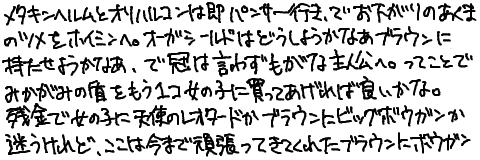 メタキンヘルムとオリハルコンは即パンサー行き、でお下がりのあくま
のツメをホイミンへ。オーガシールドはどうしようかなあブラウンに
持たせようかなあ、で冠は言わずもがな主人公へ。ってことで
みかがみの盾をもう1コ女の子に買ってあげれば良いかな。
残金で女の子に天使のレオタードかブラウンにビッグボウガンか
迷うけれど、ここは今まで頑張ってきてくれたブラウンにボウガン